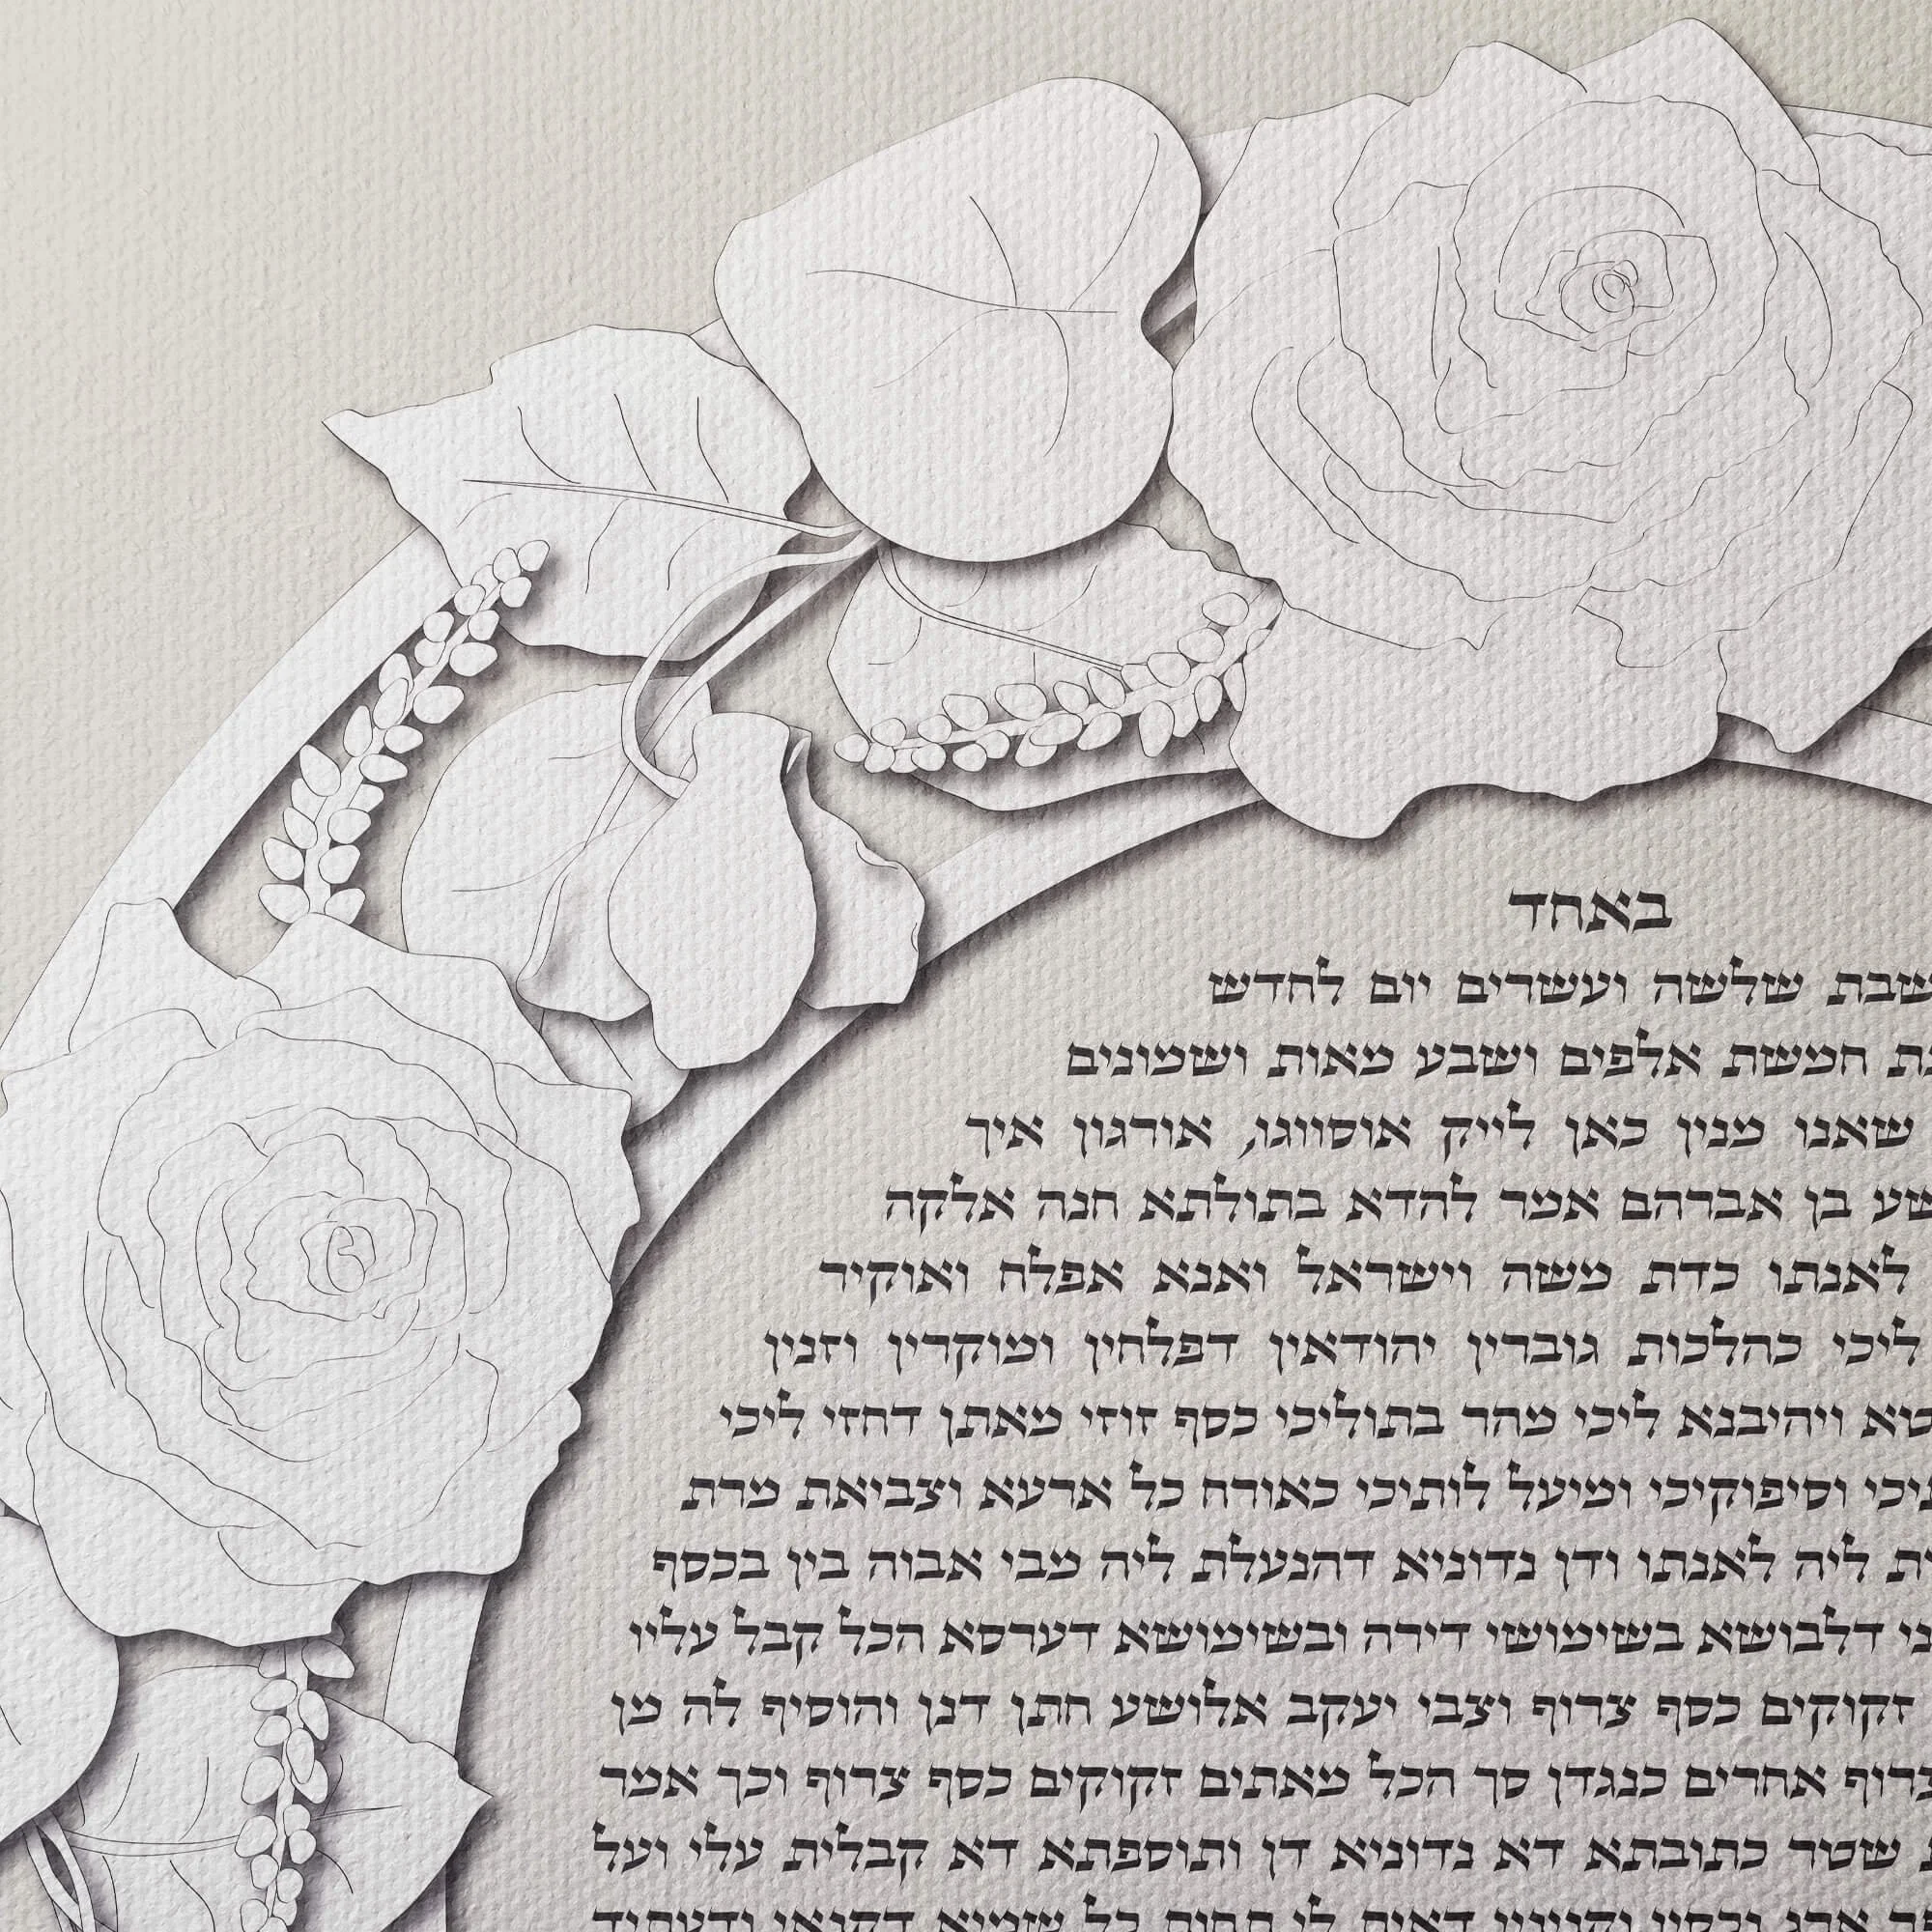 באחד
שבת שלשה ועשרים יום לחדש
חמשת אלפים ושבע מאות ושמונים
שאנו מנין כאן לייק אוסווגו, אורגון איך
בן אברהם אמר להדא בתולתא חנה אלקה
לאנתו כדת משה וישראל ואנא אפלח ואוקיר
ליכי כהלכות גוברין יהודאין דפלחין ומוקרין וזנין
ויהיבנא ליכי מהר בתוליכי כסף זוזי מאתן דחזי ליכי
וסיפוקיכי ומיעל לותיכי כאורח כל ארעא וצביאת מרת
ליה לאנתו ודן נדוניא דהנעלת ליה מבי אבוה בין בכסף
דלבושא בשימושי דירה ובשימושא דערסא הכל קבל עליו
זקוקים כסף צרוף וצבי יעקב אלושע חתן דנן והוסיף לה מן
אחרים כנגדן סך הכל מאתים זקוקים כסף צרוף וכך אמר
שטר כתובתא דא נדוניא דן ותוספתא דא קבלית עלי ועל
דאית לי תחות כל שמיא דקנאי ודעתיד